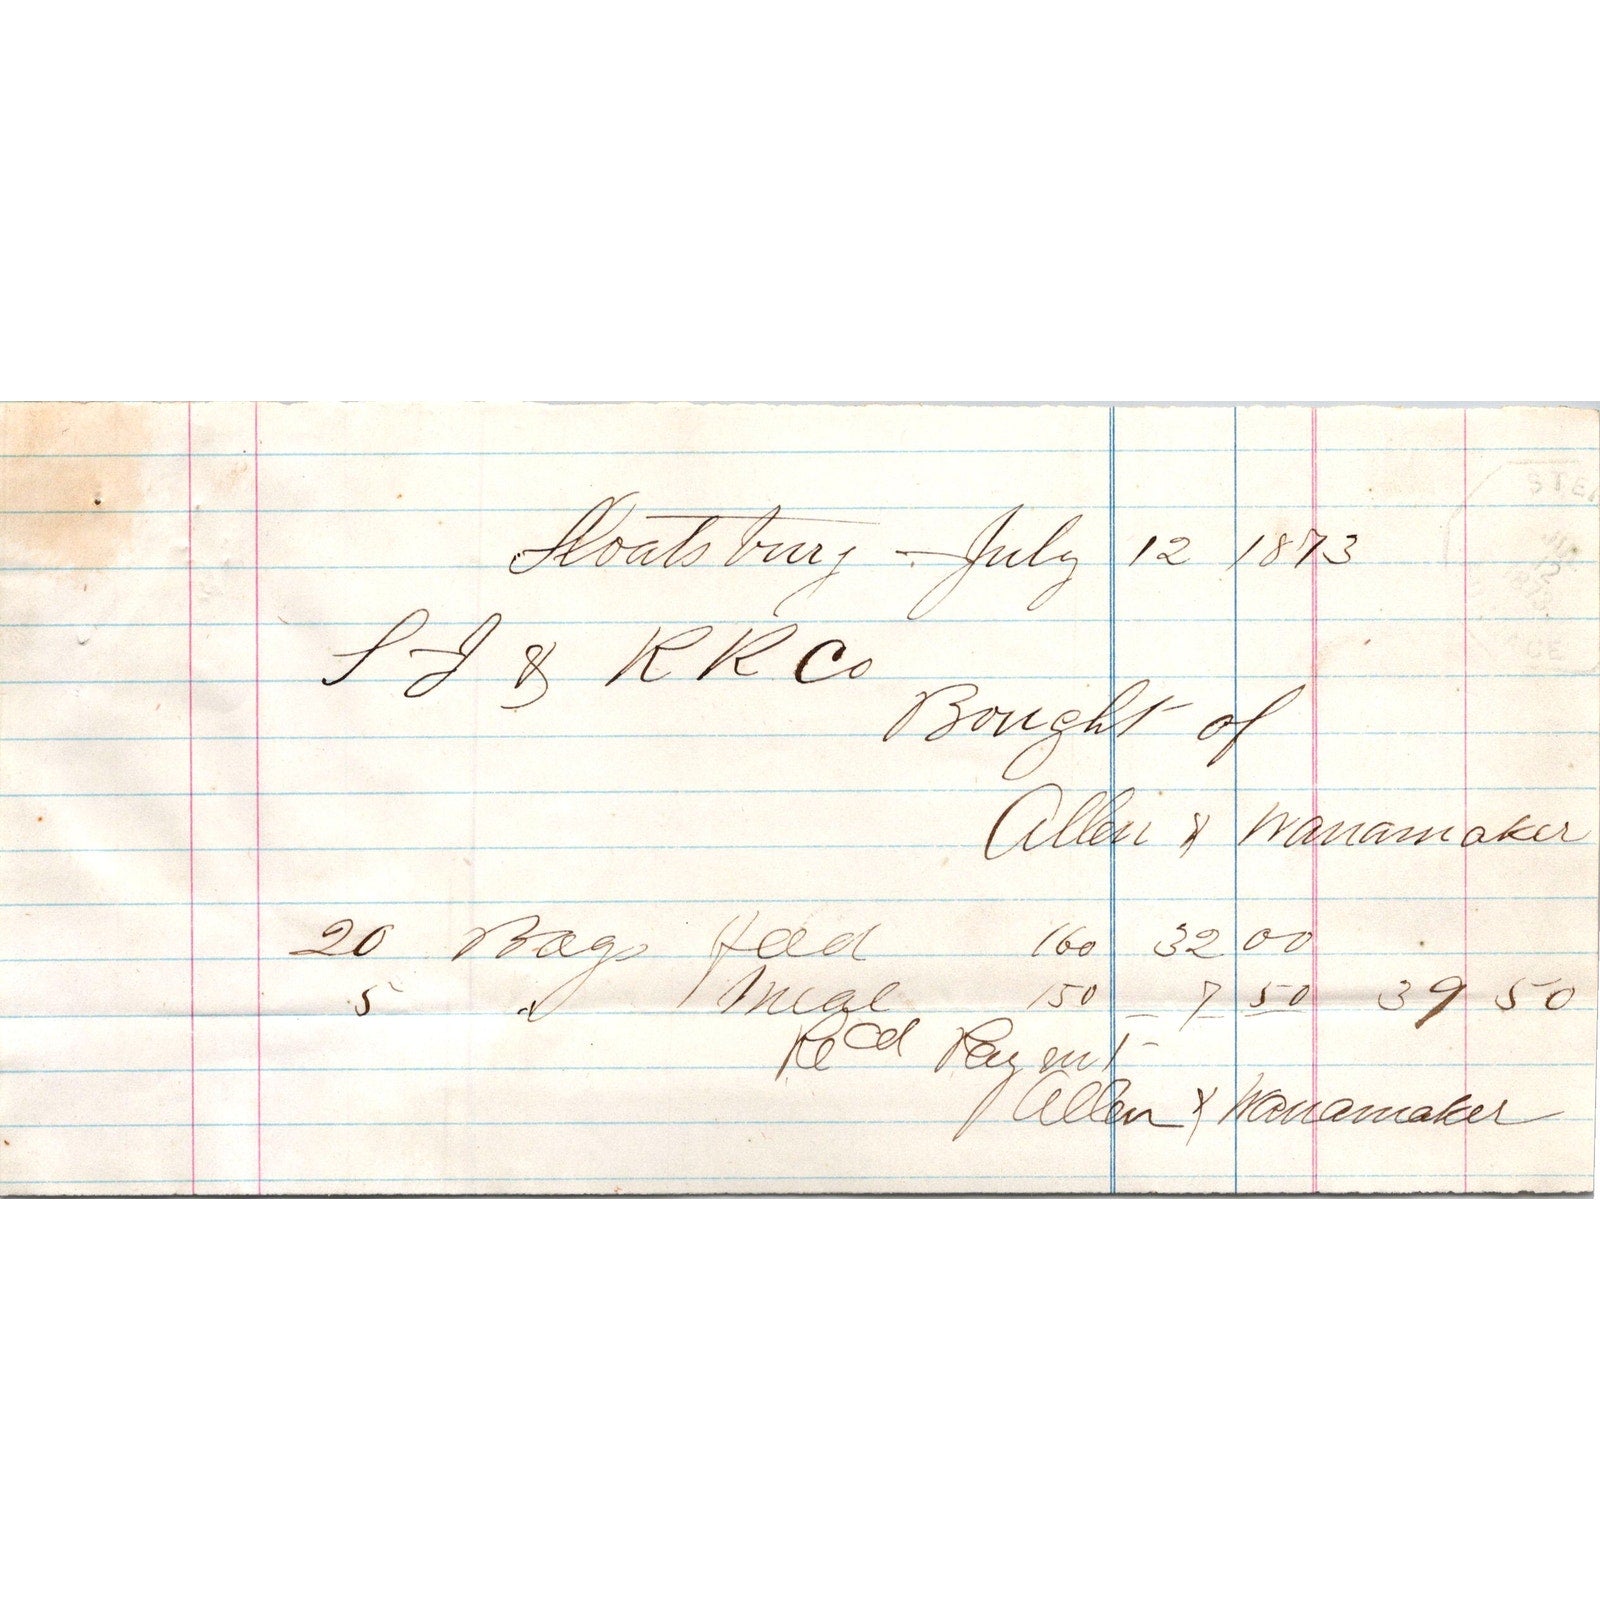 Sloatsburg - July 12 1873
S I & R R Co
Bought of
Allen & Wanamaker
20 Bags feed 160 32 00
5 " Meal 150 7 50 39 50
Recd Paymt
Allen & Wanamaker